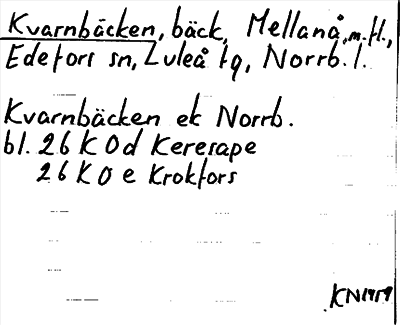 Kvarnbäcken, bäck, Mellanå, m.fl.,
Edefors sn, Luleå tg, Norrb. l.
Kvarnbäcken ek Norrb.
bl. 26 K 0d Kererape
26 K 0 e Krokfors
KN1959